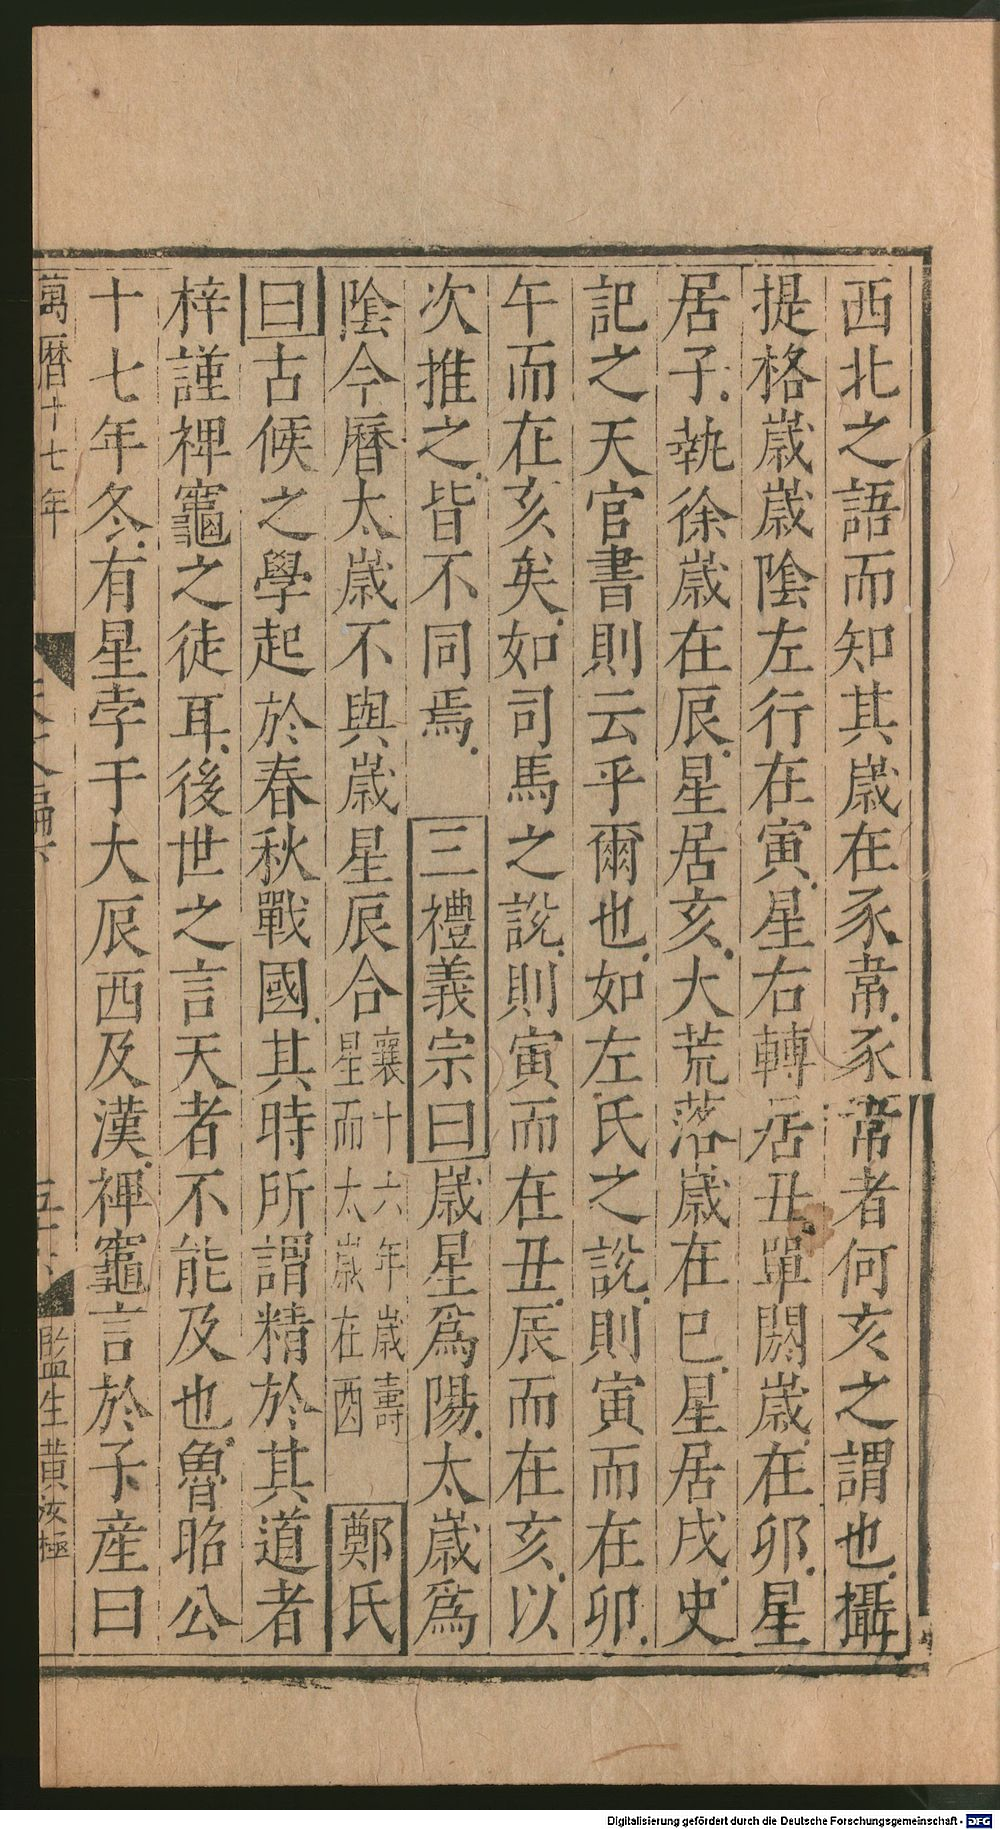 西北之語而知其歲在豕韋豕韋者何亥之謂也攝
提格歲歲陰左行在寅星右轉居丑單閼歲在卯星
居子執徐歲在辰星居亥大荒落歲在巳星居戌史
記之天官書則云乎爾也如左氏之說則寅而在卯
午而在亥矣如司馬之說則寅而在丑辰而在亥以
次推之皆不同焉 三禮義宗曰歲星爲陽太歲爲
陰今曆太歲不與歲星辰合襄十六年歲壽星而太歲在酉 鄭氏
曰古候之學起於春秋戰國其時所謂精於其道者
梓謹禆竈之徒耳後世之言天者不能及也魯昭公
十七年冬有星孛于大辰西及漢禆竈言於子産曰
萬曆十七年
監生黃汝極
Digitalisierung gefördert durch die Deutsche Forschungsgemeinschaft - DFG